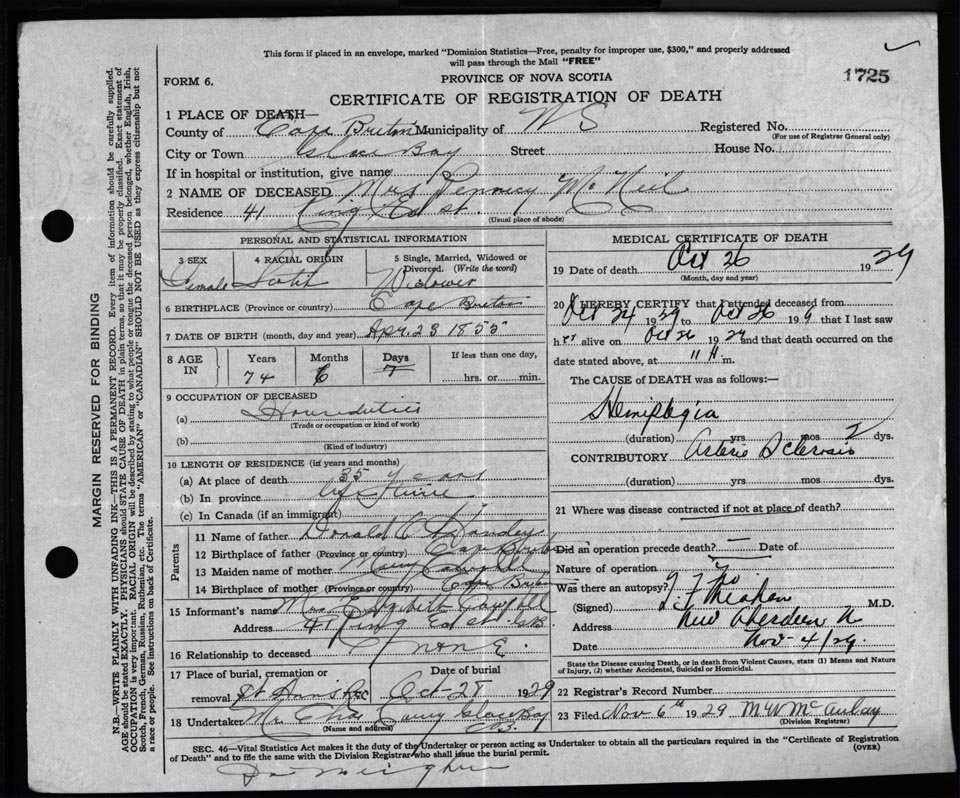 This form if placed in an envelope, marked "Dominion Statistics—Free, penalty for improper use, $300," and properly addressed
will pass through the Mail "FREE"
FORM 6.
PROVINCE OF NOVA SCOTIA
1725
CERTIFICATE OF REGISTRATION OF DEATH
1 PLACE OF DEATH—
County of Cape Breton Municipality of N S Registered No.
(For use of Registrar General only)
City or Town Glace Bay Street House No.
If in hospital or institution, give name
2 NAME OF DECEASED Mrs McNeil
Residence 41 King Ed st.
(Usual place of abode)
PERSONAL AND STATISTICAL INFORMATION
3 SEX
Female
4 RACIAL ORIGIN
Scotch
5 Single, Married, Widowed or
Divorced. (Write the word)
Widower
6 BIRTHPLACE (Province or country) Cape Breton
7 DATE OF BIRTH (month, day and year) Apr. 28 1855
8 AGE
IN
Years
74
Months
6
Days
If less than one day,
hrs. or min.
9 OCCUPATION OF DECEASED
(a) Houseduties
(Trade or occupation or kind of work)
(b)
(Kind of industry)
10 LENGTH OF RESIDENCE (in years and months)
(a) At place of death 35 years
(b) In province life time
(c) In Canada (if an immigrant)
Parents
11 Name of father Donald
12 Birthplace of father (Province or country) Cape Breton
13 Maiden name of mother Mary
14 Birthplace of mother (Province or country) Cape Breton
15 Informant's name Mrs Elizabeth
Address 41 King Ed st. G.B.
16 Relationship to deceased NONE
17 Place of burial, cremation or
removal St Anns
Date of burial
Oct-28 1929
18 Undertaker Mr Chas Glace Bay
C.B.
(Name and address)
MEDICAL CERTIFICATE OF DEATH
19 Date of death Oct 26 1929
(Month, day and year)
20 I HEREBY CERTIFY that I attended deceased from
Oct 24 1929 to Oct 26 19 that I last saw
her alive on Oct 26 1929 and that death occurred on the
date stated above, at 11 m.
The CAUSE of DEATH was as follows:—
Hemiplegia
(duration) yrs mos 2 dys.
CONTRIBUTORY Arterio Sclerosis
(duration) yrs mos dys.
21 Where was disease contracted if not at place of death?
Did an operation precede death? — Date of
Nature of operation
Was there an autopsy? No
(Signed) M.D.
Address New Aberdeen
Date Nov-4/29
State the Disease causing Death, or in death from Violent Causes, state (I) Means and Nature
of Injury, (J) whether Accidental, Suicidal or Homicidal.
22 Registrar's Record Number
23 Filed Nov 6th 1929 M W McAulay
(Division Registrar)
SEC. 46—Vital Statistics Act makes it the duty of the Undertaker or person acting as Undertaker to obtain all the particulars required in the "Certificate of Registration
of Death" and to file the same with the Division Registrar who shall issue the burial permit.
(OVER)
MARGIN RESERVED FOR BINDING
N.B.—WRITE PLAINLY WITH UNFADING INK—THIS IS A PERMANENT RECORD. Every item of information should be carefully supplied.
AGE should be stated EXACTLY. PHYSICIANS should STATE CAUSE OF DEATH in plain terms, so that it may be properly classified. Exact statement of
OCCUPATION is very important. RACIAL ORIGIN will be described by stating to what people or tongue the deceased person belonged, whether English, Irish,
Scotch, French, German, Russian, Ruthenian, etc. The terms "AMERICAN" or "CANADIAN" SHOULD NOT BE USED as they express citizenship but not
a race or people. See instructions on back of Certificate.